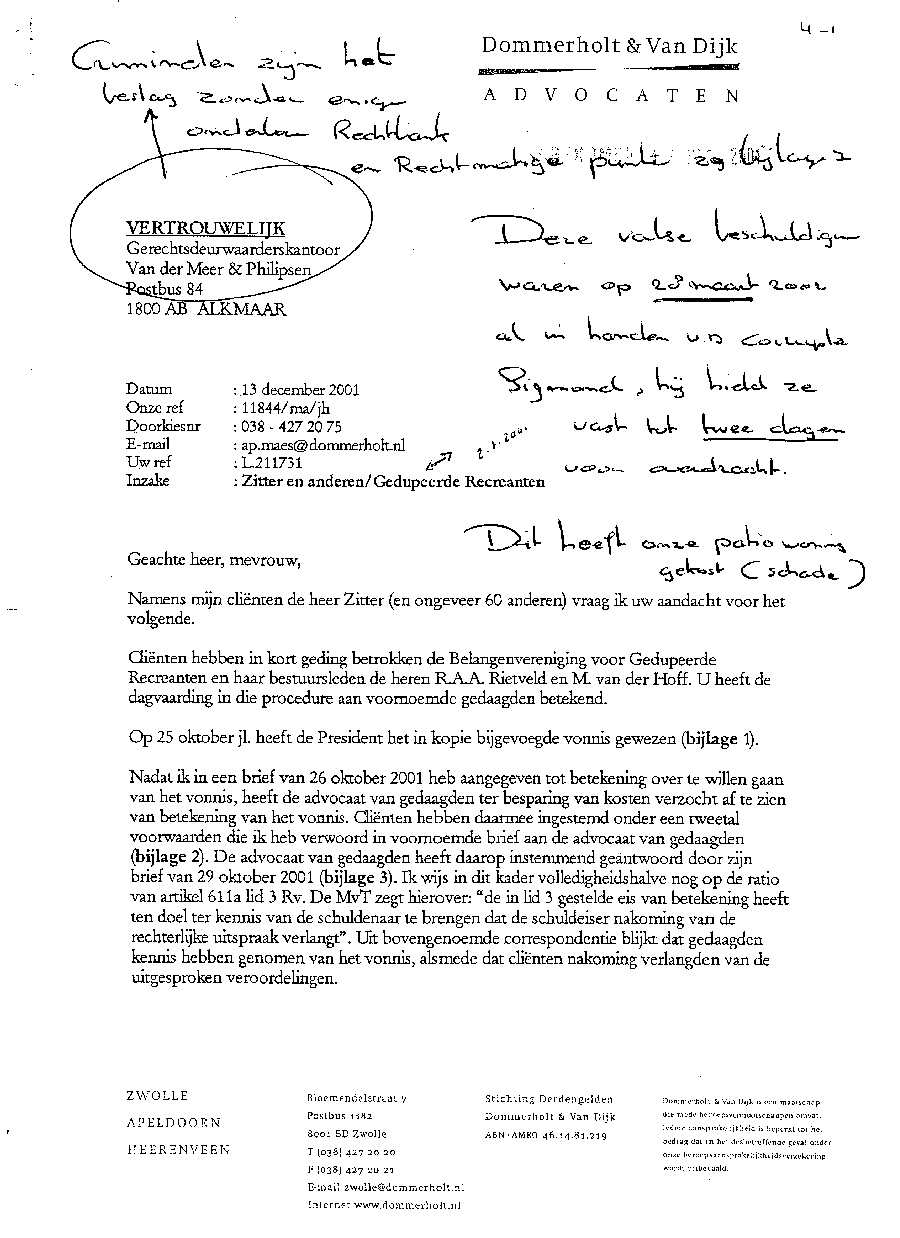 4-1
Dommerholt & Van Dijk
ADVOCATEN
Criminelen zijn het
beslag zonder enige
onderbouw Rechtbank
en Rechtmatige punten zg bijlage 2
VERTROUWELIJK
Gerechtsdeurwaarderskantoor
Van der Meer & Philipsen
Postbus 84
1800 AB ALKMAAR
Deze valse beschuldigen
waren op 28 maart 2001
al in handen v.d. corrupte
Sigmond, hij hield ze
vast tot twee dagen
voor overdracht.
Datum : 13 december 2001
Onze ref : 11844/ma/jh
Doorkiesnr : 038 - 427 20 75
E-mail : ap.maes@dommerholt.nl
Uw ref : L.211731
Inzake : Zitter en anderen/Gedupeerde Recreanten
Dit heeft onze patio woning
gekost (schade)
Geachte heer, mevrouw,
Namens mijn cliënten de heer Zitter (en ongeveer 60 anderen) vraag ik uw aandacht voor het
volgende.
Cliënten hebben in kort geding betrokken de Belangenvereniging voor Gedupeerde
Recreanten en haar bestuursleden de heren R.A.A. Rietveld en M. van der Hoff. U heeft de
dagvaarding in die procedure aan voornoemde gedaagden betekend.
Op 25 oktober jl. heeft de President het in kopie bijgevoegde vonnis gewezen (bijlage 1).
Nadat ik in een brief van 26 oktober 2001 heb aangegeven tot betekening over te willen gaan
van het vonnis, heeft de advocaat van gedaagden ter besparing van kosten verzocht af te zien
van betekening van het vonnis. Cliënten hebben daarmee ingestemd onder een tweetal
voorwaarden die ik heb verwoord in voornoemde brief aan de advocaat van gedaagden
(bijlage 2). De advocaat van gedaagden heeft daarop instemmend geantwoord door zijn
brief van 29 oktober 2001 (bijlage 3). Ik wijs in dit kader volledigheidshalve nog op de ratio
van artikel 611a lid 3 Rv. De MvT zegt hierover: “de in lid 3 gestelde eis van betekening heeft
ten doel ter kennis van de schuldenaar te brengen dat de schuldeiser nakoming van de
rechterlijke uitspraak verlangt”. Uit bovengenoemde correspondentie blijkt dat gedaagden
kennis hebben genomen van het vonnis, alsmede dat cliënten nakoming verlangden van de
uitgesproken veroordelingen.
ZWOLLE
APELDOORN
HEERENVEEN
Bloemendalstraat 7
Postbus 1182
8001 BD Zwolle
T (038) 427 20 20
F (038) 427 20 21
E-mail zwolle@dommerholt.nl
Internet www.dommerholt.nl
Stichting Derdengelden
Dommerholt & Van Dijk
ABN-AMRO 46.14.81.219
Dommerholt & Van Dijk is een maatschap
die mede beroepsvennootschappen omvat.
Iedere aansprakelijkheid is beperkt tot het
bedrag dat in het desbetreffende geval onder
onze beroepsaansprakelijkheidsverzekering
wordt uitbetaald.